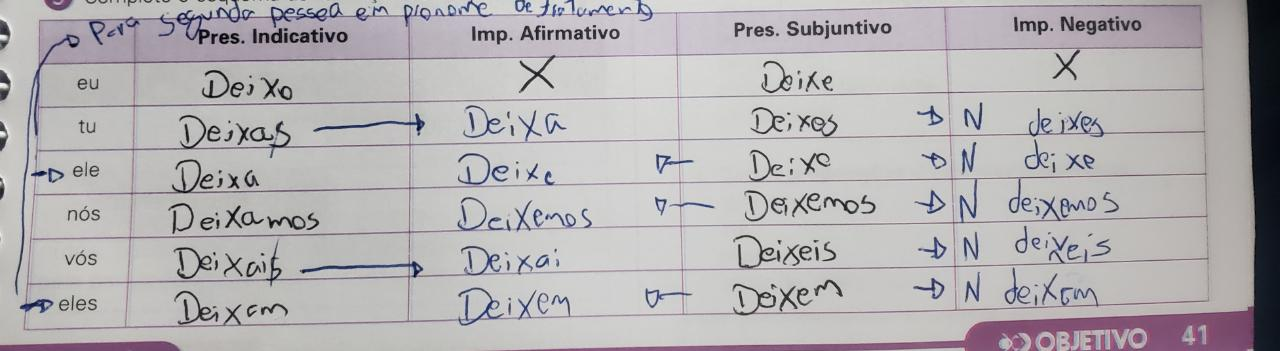 Para segunda pessoa em pronome de tratamento
Pres. Indicativo Imp. Afirmativo Pres. Subjuntivo Imp. Negativo
eu Deixo X Deixe X
tu Deixas Deixa Deixes N deixes
ele Deixa Deixe Deixe N deixe
nós Deixamos Deixemos Deixemos N deixemos
vós Deixais Deixai Deixeis N deixeis
eles Deixam Deixem Deixem N deixem
OBJETIVO 41